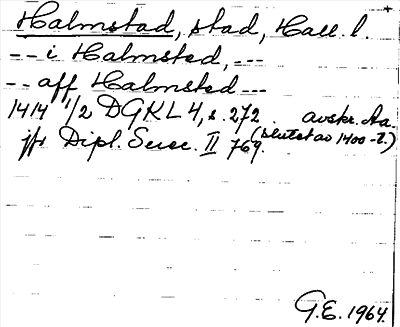 Halmstad, stad, Hall. l.
-- i Halmsted, ---
-- aff Halmsted ---
1414 1/2 DGKL 4, s. 272. avskr. Aa.
(slutet av 1400-t.)
jfr Dipl. Suec. II 769.
G.E. 1964.